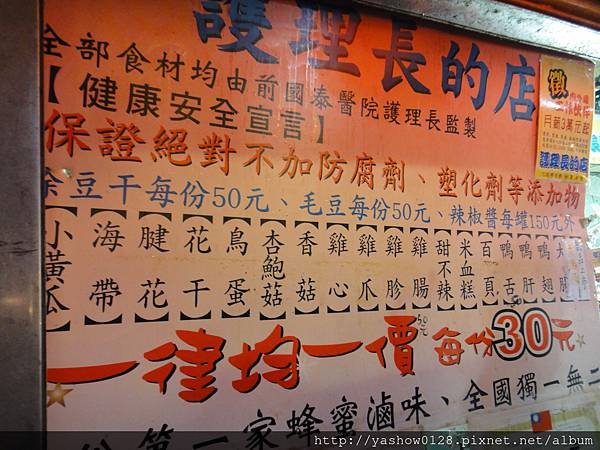 護理長的店
全部食材均由前國泰醫院護理長監製
【健康安全宣言】
保證絕對不加防腐劑、塑化劑等添加物
除豆干每份50元、毛豆每份50元、辣椒醬每罐150元外
【小黃瓜】
【海帶】
【腱花】
【花干】
【鳥蛋】
【杏鮑菇】
【香菇】
【雞心】
【雞爪】
【雞胗】
【雞腸】
【甜不辣】
【米血糕】
【百頁】
【鴨舌】
【鴨肝】
【鴨翅】
一律均一價 每份30元
50元
50
第一家蜂蜜滷味、全國獨一無二
徵
月薪3萬元起
護理長的店
http://yashow0128.pixnet.net/album